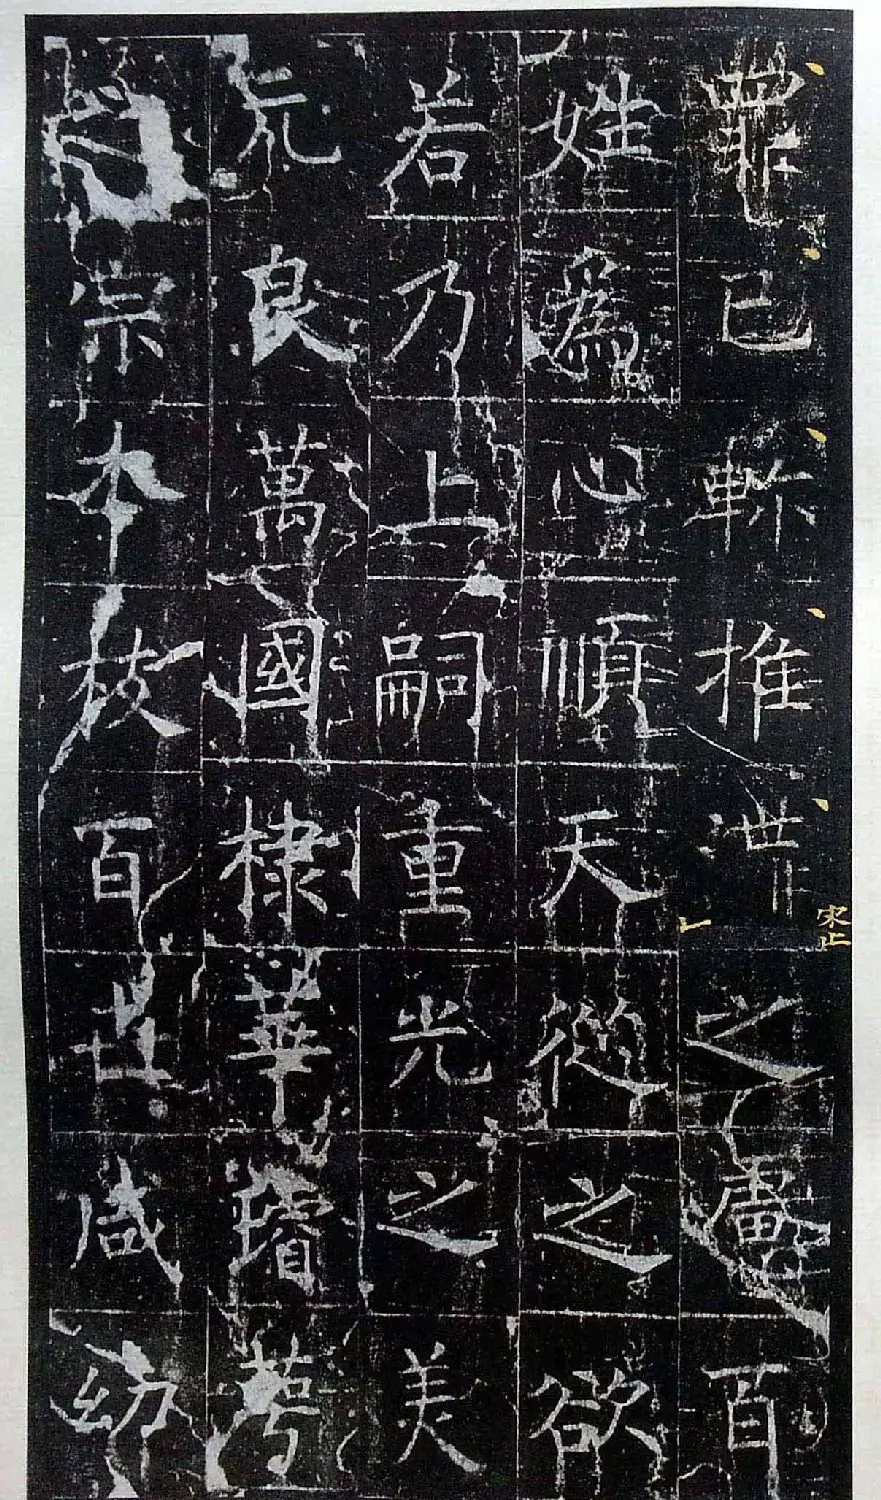 罪已軫推泄之慮百
姓爲心順天從之欲
若乃上嗣重光之美
元良萬國棣華璿萼
之宗本枝百世咸幼
宋止